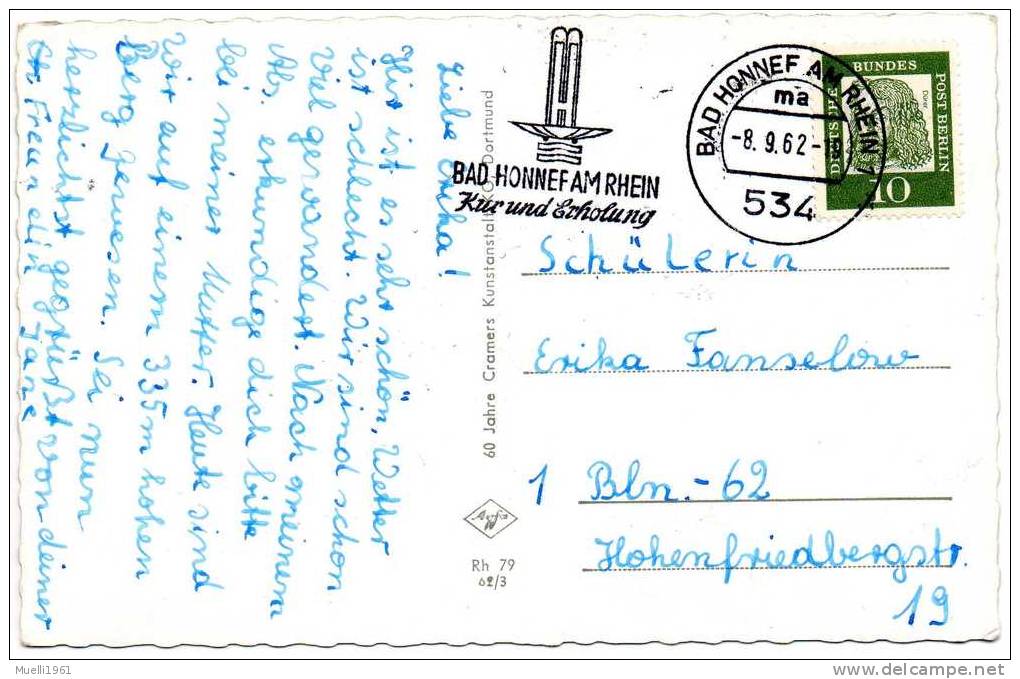 Liebe Erika!
Hier ist es sehr schön, Wetter
ist schlecht. Wir sind schon
viel gewandert. Nach meinem
erkundige dich bitte
bei meiner Mutter. Heute sind
wir auf einem 335m hohen
Berg gewesen. Sei nun
herzlichst gegrüßt von deiner
Freundin
60 Jahre Cramers Kunstanstalt KG, Dortmund
Rh 79
62/3
BAD HONNEF AM RHEIN
Kur und Erholung
BAD HONNEF AM RHEIN 1
ma
-8.9.62-
534
DEUTSCHE
BUNDES
POST BERLIN
Dürer
10
Schülerin
Erika Fanselow
1 Bln.-62
Hohenfriedbergstr.
19
Muelli1961
www.delcampe.net